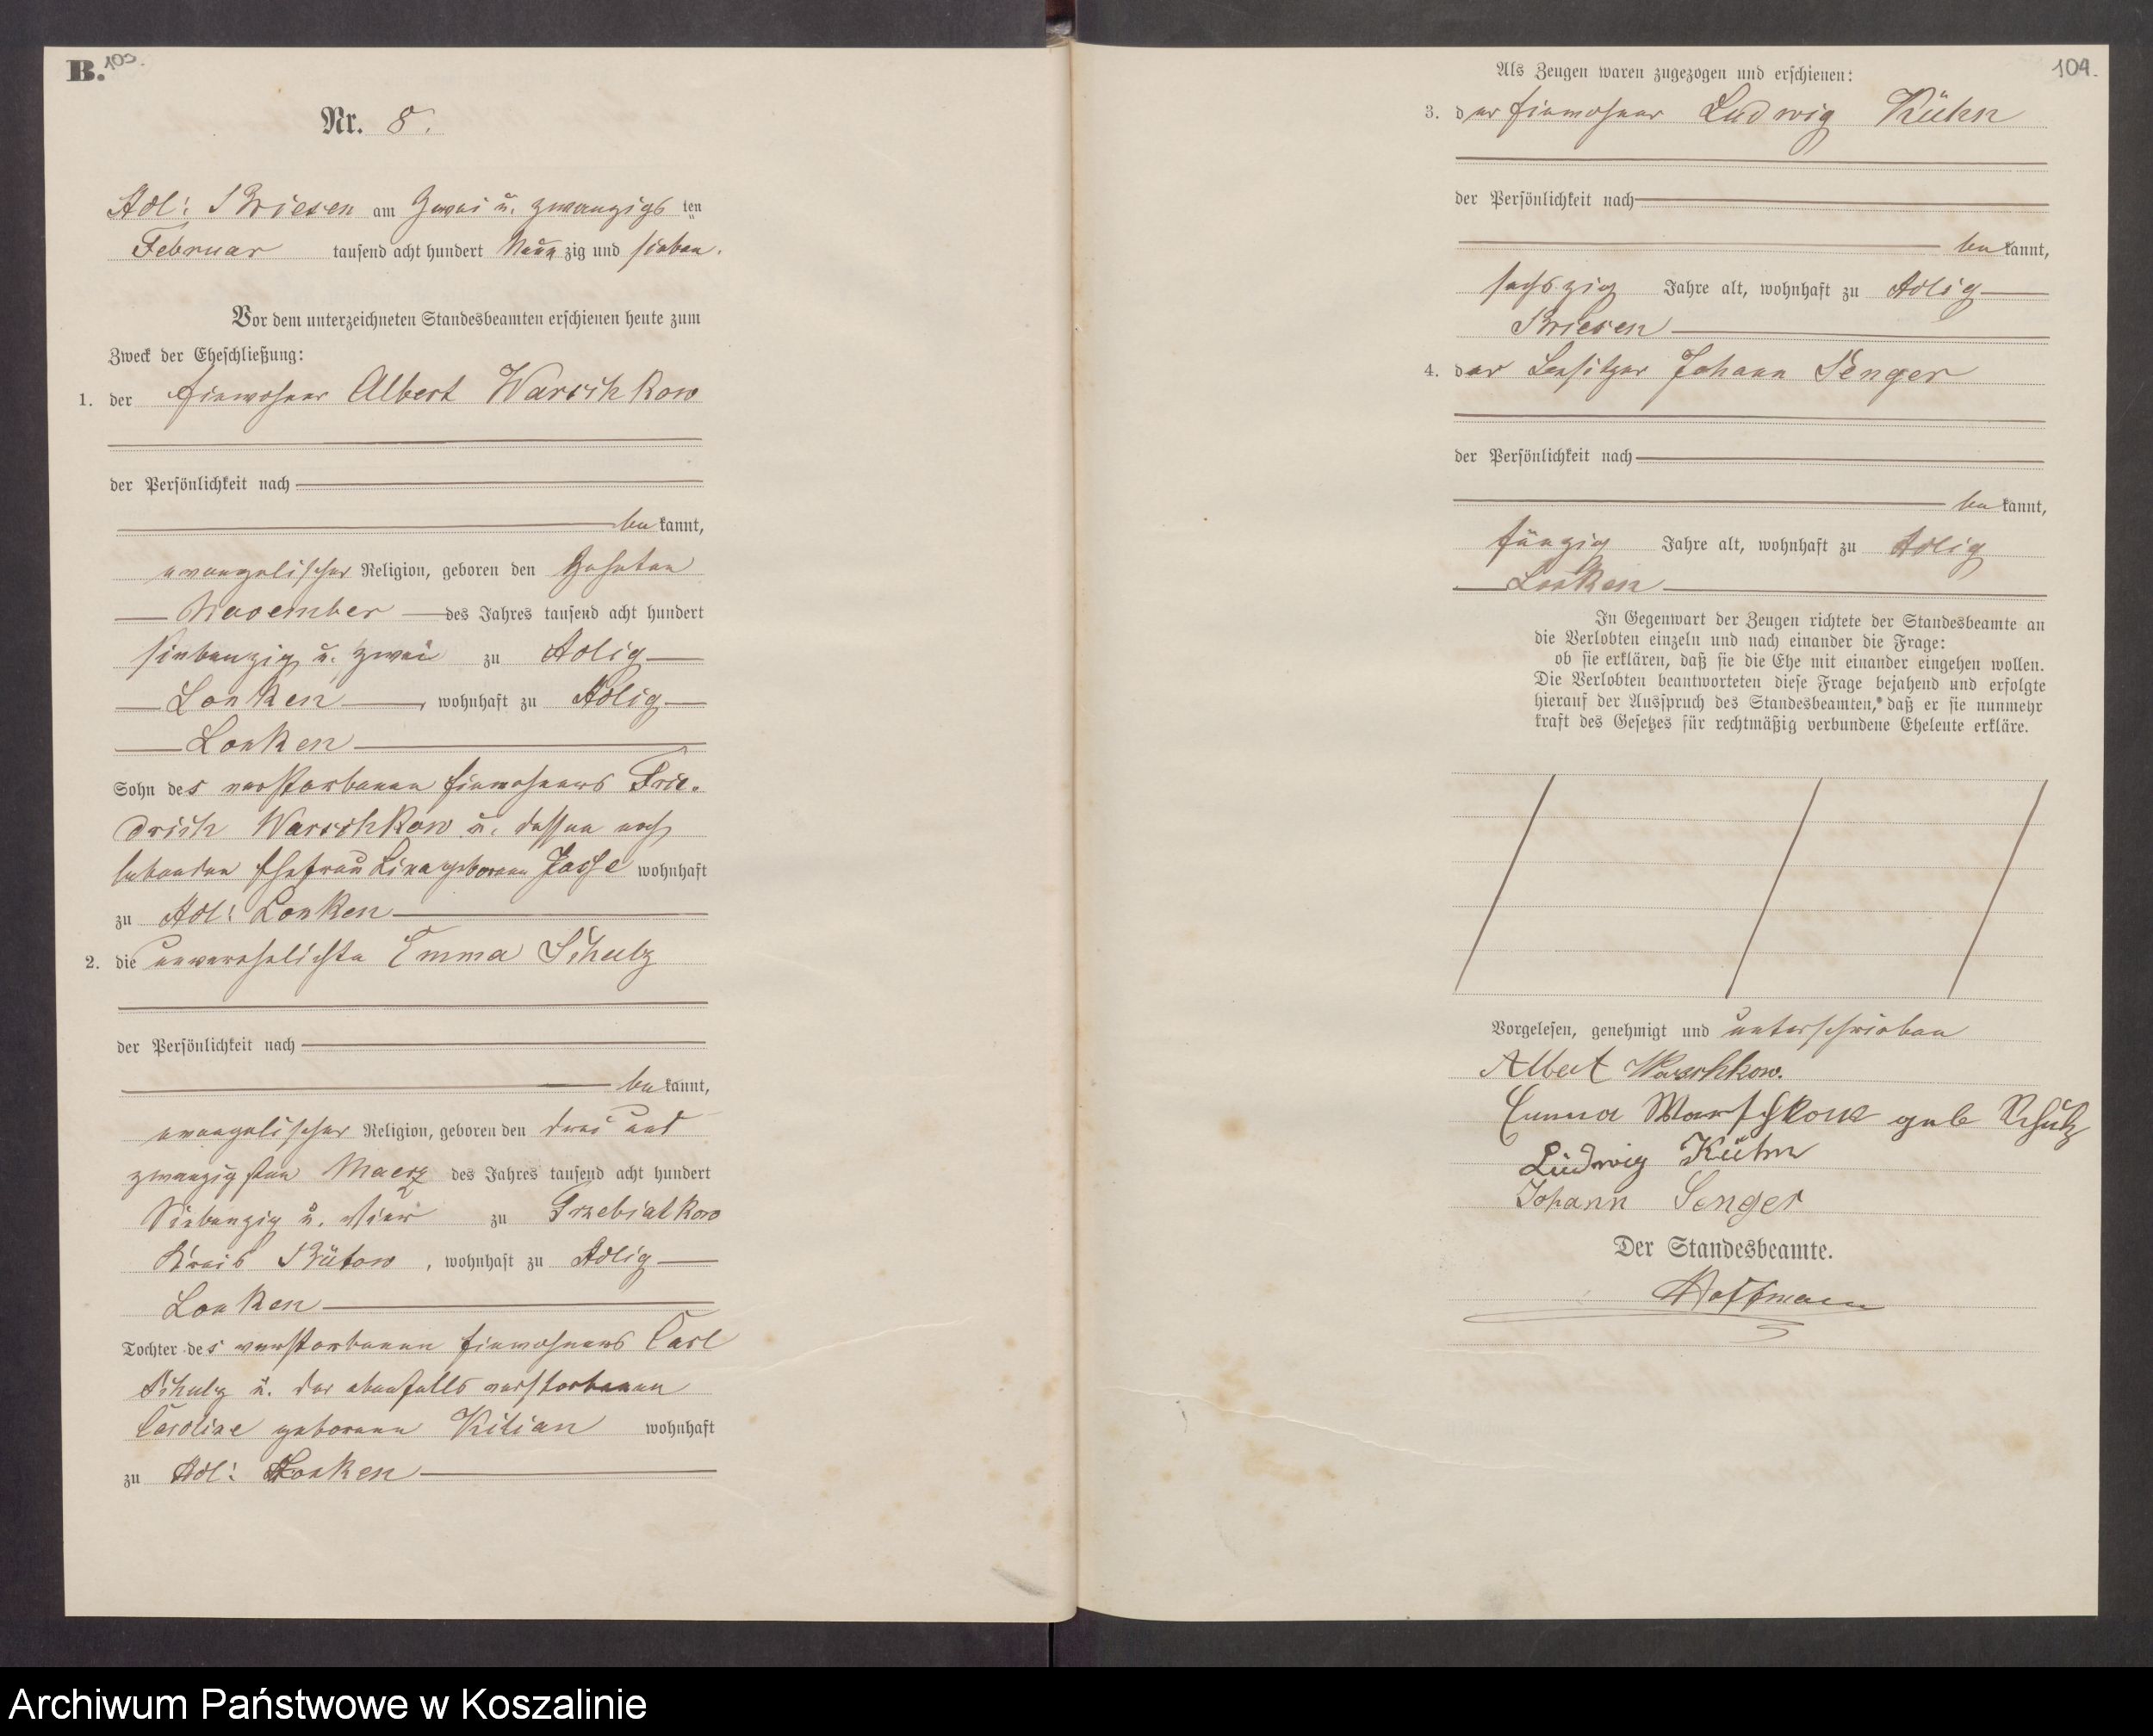 B. 103.
Nr. 8.
Adl: Briesen am Zwei u. zwanzigs ten
Februar tausend acht hundert Neun zig und sieben.
Vor dem unterzeichneten Standesbeamten erschienen heute zum
Zweck der Eheschließung:
1. der Einwohner Albert Warschkow
der Persönlichkeit nach
be kannt,
evangelischer Religion, geboren den Zehnten
November des Jahres tausend acht hundert
siebenzig u. zwei zu Adlig
Lonken, wohnhaft zu Adlig
Lonken
Sohn des verstorbenen Einwohners Frie-
drich Warschkow u. dessen noch
lebenden Ehefrau Lina geborenen wohnhaft
zu Adl: Lonken
2. die unverehelichte Emma Schulz
der Persönlichkeit nach
be kannt,
evangelischer Religion, geboren den drei und
zwanzigsten Maerz des Jahres tausend acht hundert
Siebenzig u. vier zu Grzebiatkow
Kreis Bütow, wohnhaft zu Adlig
Lonken
Tochter des verstorbenen Einwohners Carl
Schulz u. der ebenfalls verstorbenen
Caroline geborenen Kilian wohnhaft
zu Adl: Lonken
104.
Als Zeugen waren zugezogen und erschienen:
3. der Einwohner Ludwig Kühn
der Persönlichkeit nach
be kannt,
sechszig Jahre alt, wohnhaft zu Adlig
Briesen
4. der Besitzer Johann Senger
der Persönlichkeit nach
be kannt,
fünzig Jahre alt, wohnhaft zu Adlig
Lonken
In Gegenwart der Zeugen richtete der Standesbeamte an
die Verlobten einzeln und nach einander die Frage:
ob sie erklären, daß sie die Ehe mit einander eingehen wollen.
Die Verlobten beantworteten diese Frage bejahend und erfolgte
hierauf der Ausspruch des Standesbeamten, daß er sie nunmehr
kraft des Gesetzes für rechtmäßig verbundene Eheleute erkläre.
Vorgelesen, genehmigt und unterschrieben
Albert Warschkow.
Emma Warschkow geb Schulz
Ludwig Kühn
Johann Senger
Der Standesbeamte.
Hoffmann
Archiwum Państwowe w Koszalinie